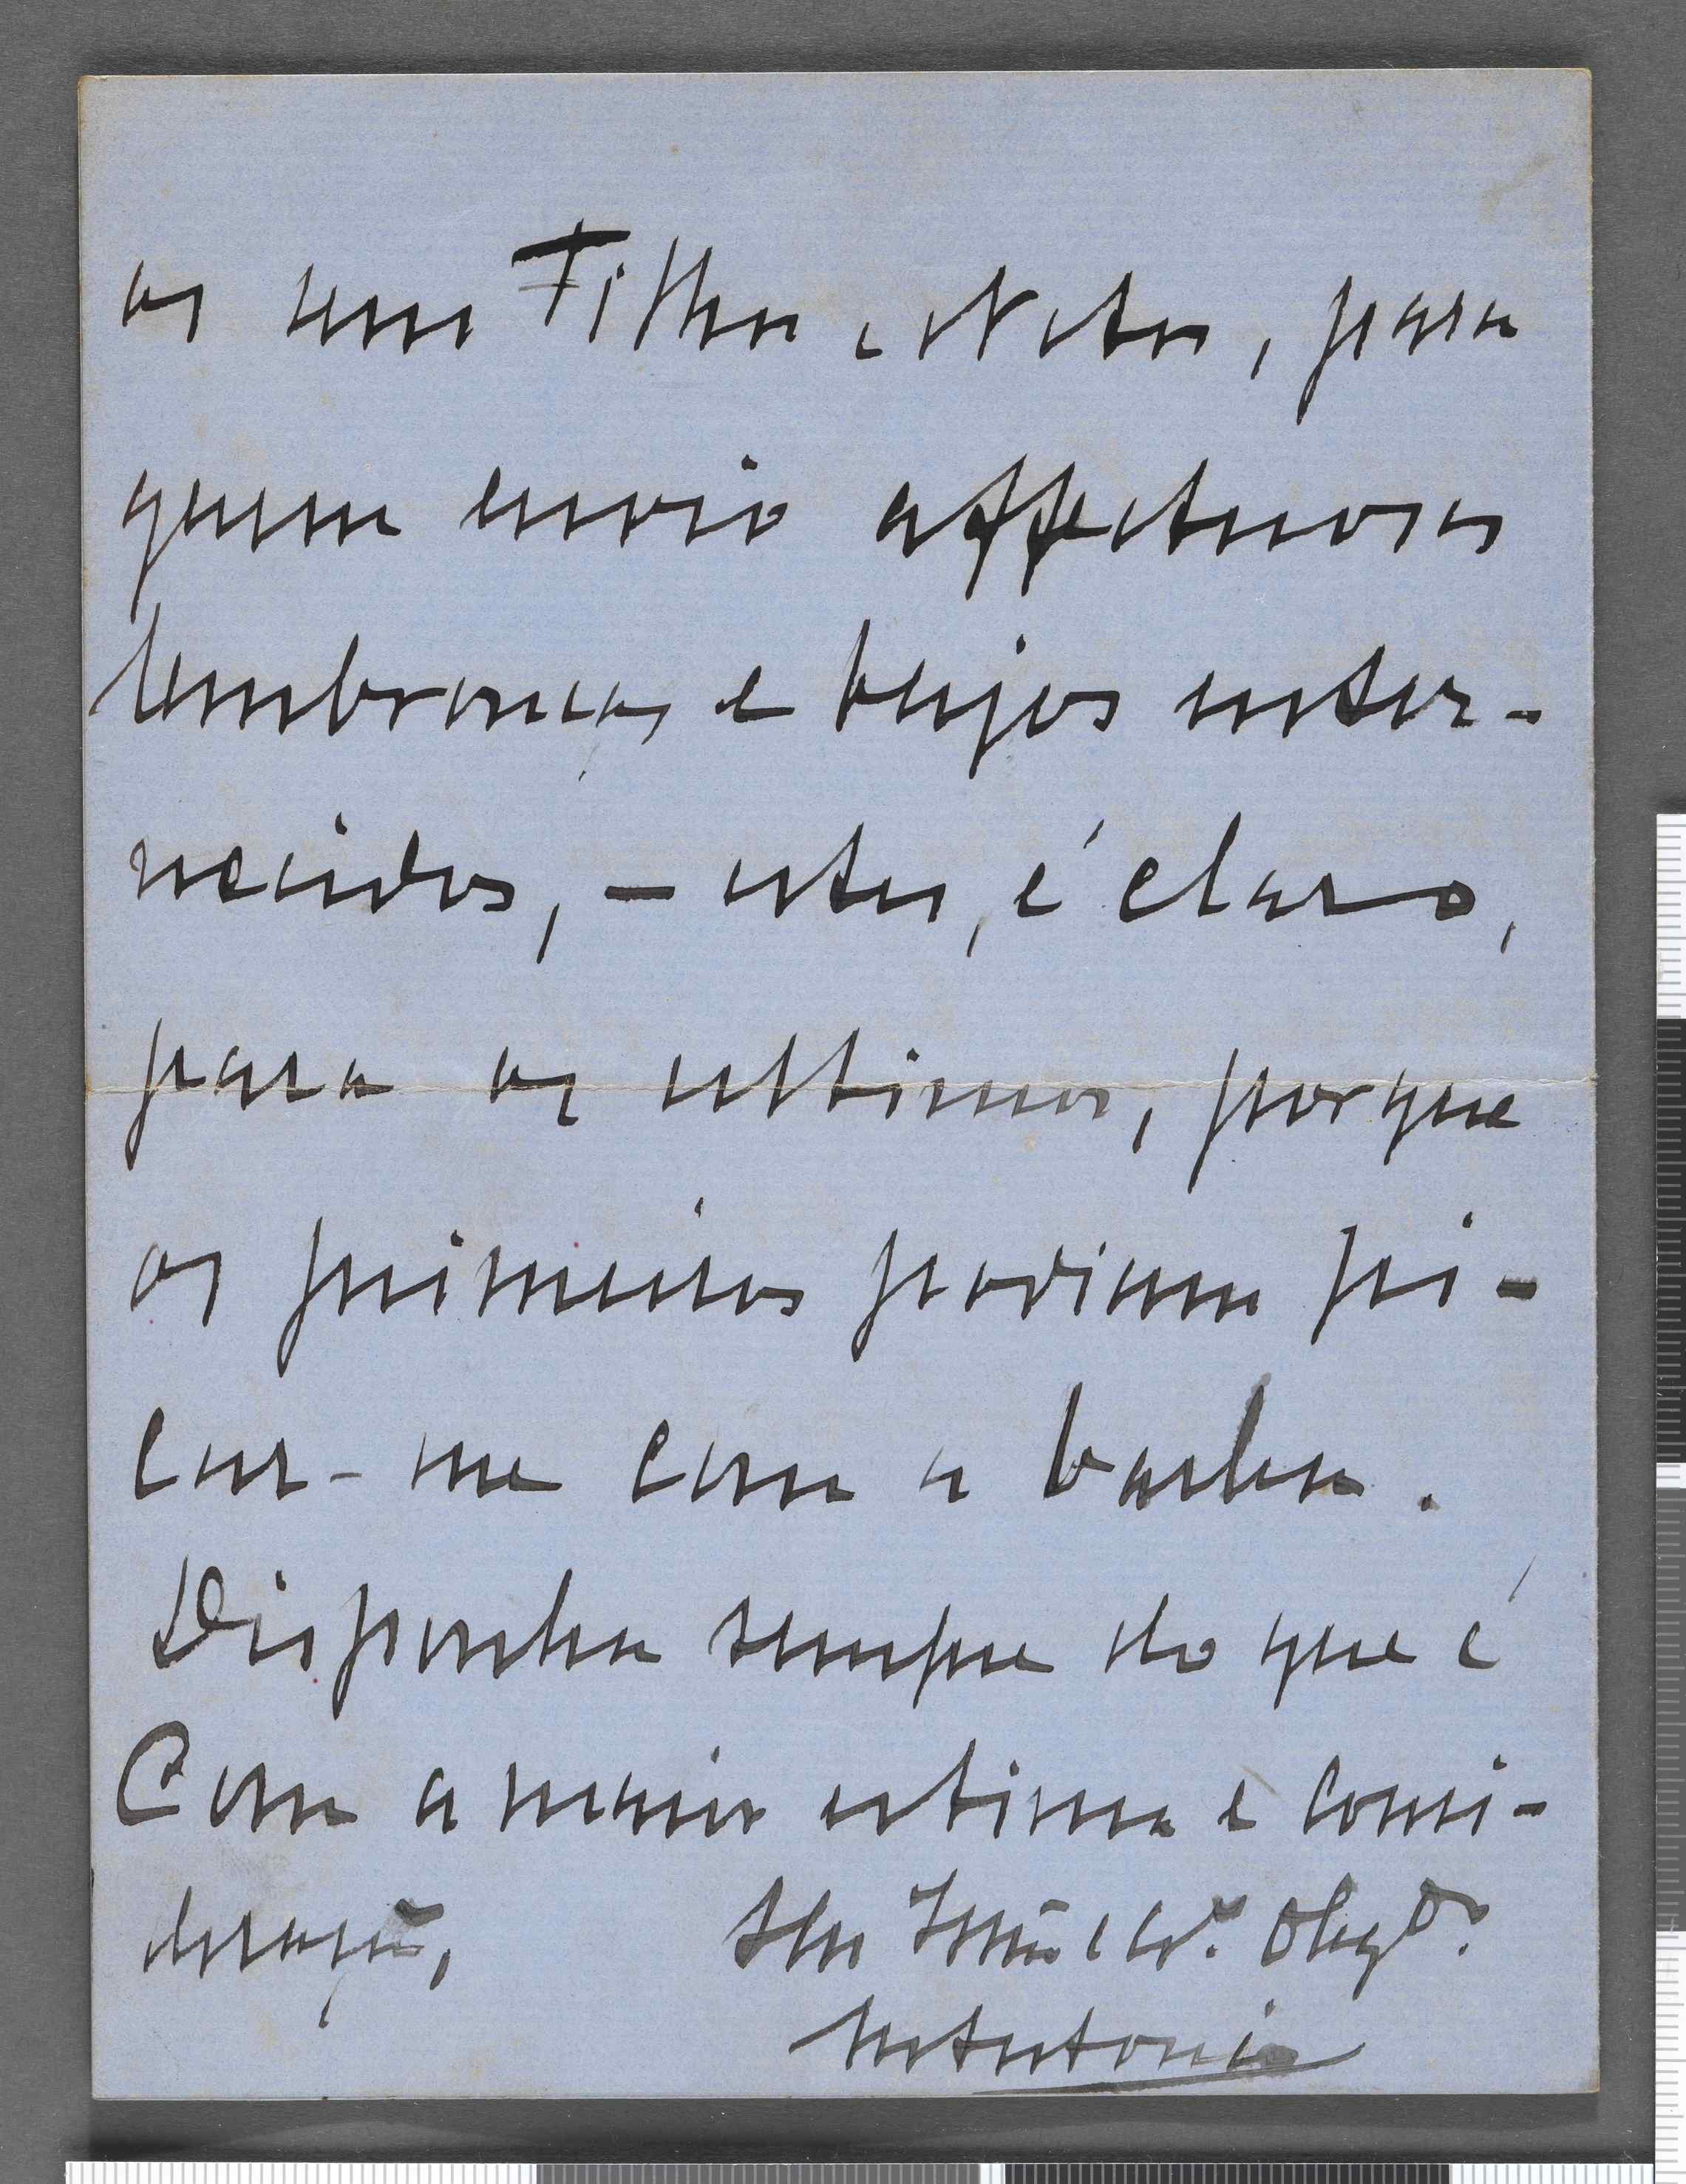 os seus Filhos e Netos, para
quem envio affectuosas
lembranças e beijos enter-
necidos, - estes, é claro,
para os ultimos, porque
os primeiros podiam pi-
car-me com a barba.
Disponha sempre do que é
Com a maior estima e consi-
deração,